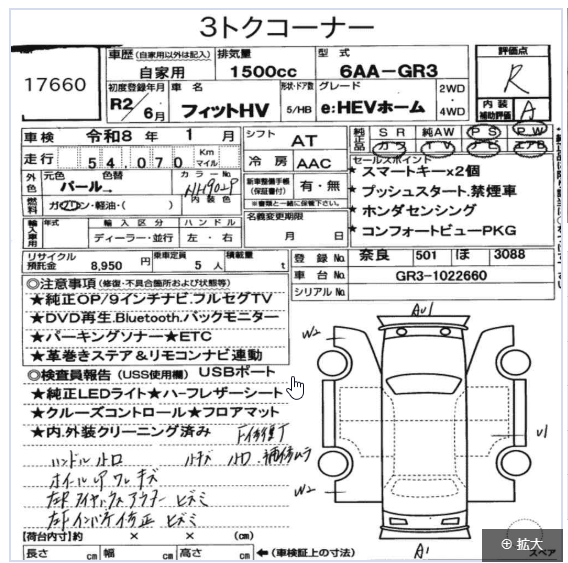 3トクコーナー
17660
車歴 (自家用以外は記入)
自家用
排気量
1500cc
型式
6AA-GR3
評価点
R
初度登録年月
R2/6月
車名
フィットHV
形状・ドア数
5/HB
グレード
e:HEVホーム
2WD
4WD
内装
補助評価
A
車検 令和8年 1月
シフト
AT
純正品
SR 純AW PS PW
カワ TV ナビ エアB
走行 54,070 Km マイル
冷房 AAC
セールスポイント
★ スマートキー×2個
★ プッシュスタート.禁煙車
★ ホンダセンシング
★ コンフォートビューPKG
外色
元色 色替
パール→
カラーNo.
NH902P
内装色
新車整備手帳
(保証書付)
有・無
※書類と一緒に保管下さい。
燃料
ガソリン・軽油・( )
名義変更期限
月 日
輸入車用
年式
輸入区分
ディーラー・並行
ハンドル
左・右
リサイクル
預託金
8,950 円
乗車定員
5 人
積載量
t
登録No. 奈良 501 ほ 3088
車台No. GR3-1022660
シリアルNo.
◎注意事項 (修復・不具合箇所および状態等)
★純正OP/9インチナビ.フルセグTV
★DVD再生.Bluetooth.バックモニター
★パーキングソナー★ETC
★革巻きステア&リモコンナビ連動
◎検査員報告 (USS使用欄) USBポート
★純正LEDライト★ハーフレザーシート
★クルーズコントロール★フロアマット
★内.外装クリーニング済み
AU1
W2
U1
W2
A1
ハンドル
[荷台内寸]約 × × (cm)
長さ cm 幅 cm 高さ cm ←(車検証上の寸法)
スペア
拡大